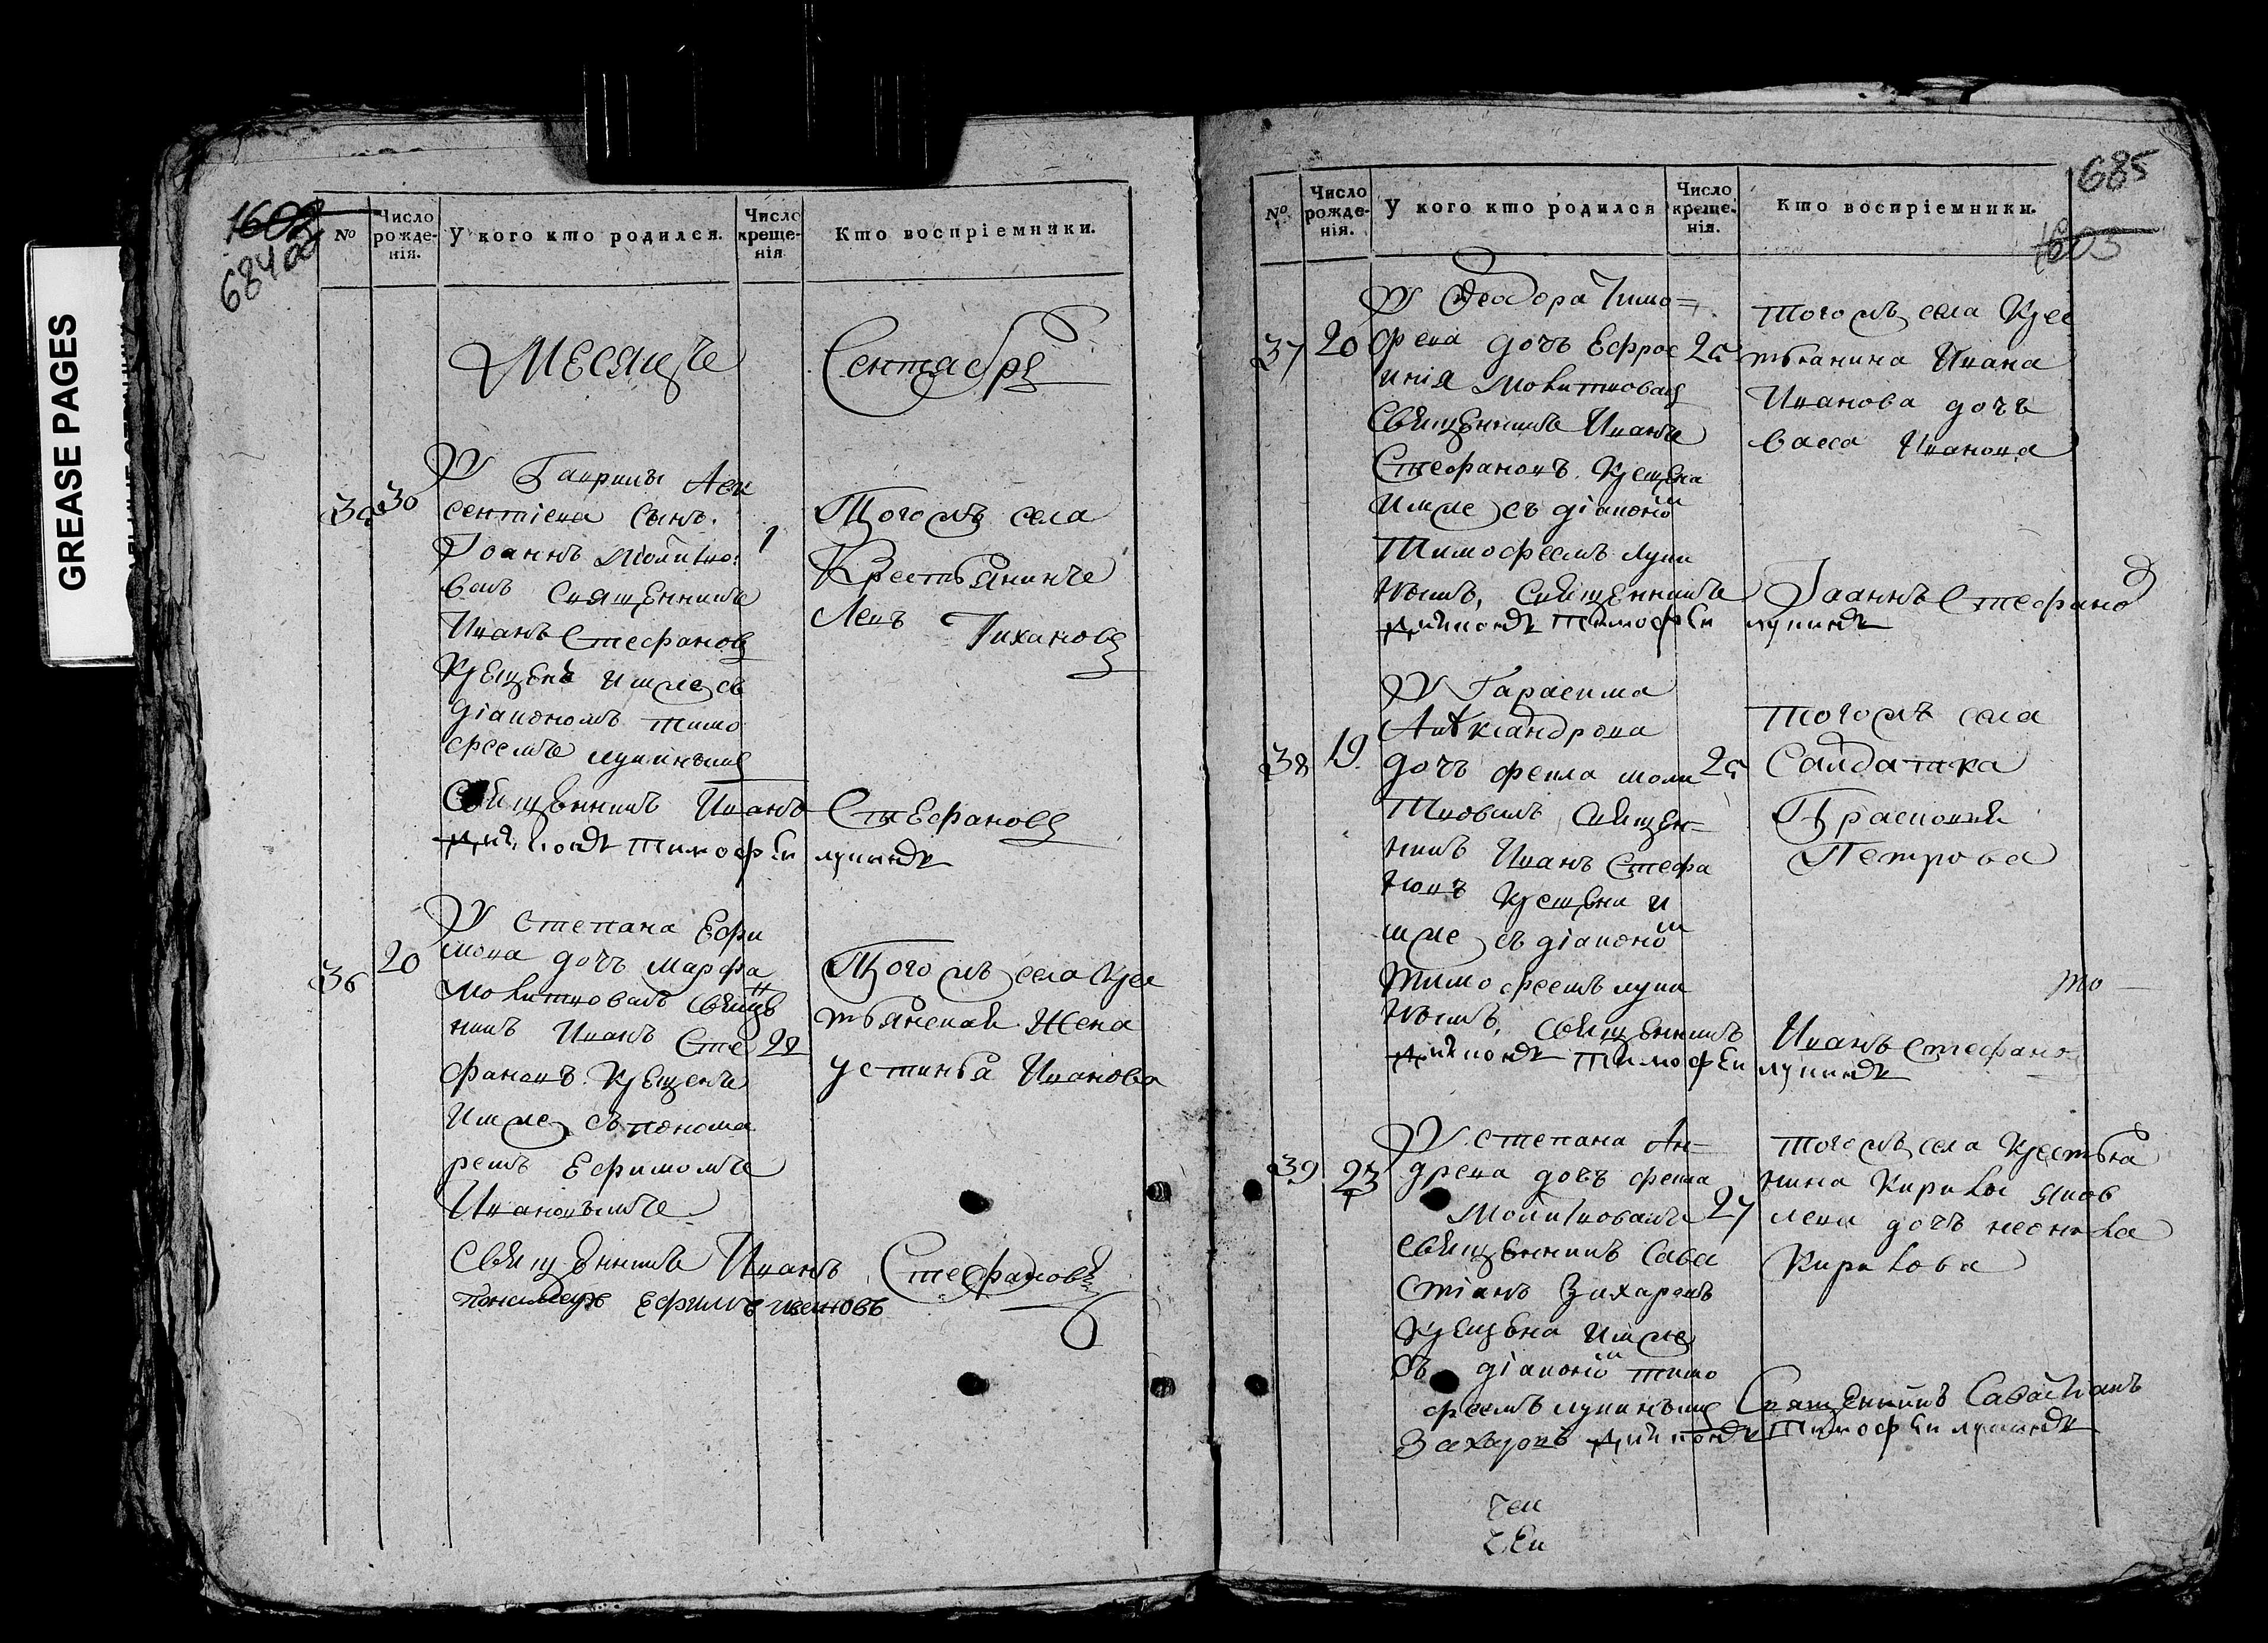 GREASE PAGES
1602
684 об
№
Число рожде-нія.
У кого кто родился.
Число креще-нія
Кто воспріемники.
Месяцъ Сентябрь
35
30
У Гаврилы Авк
сентіева сынъ
Іоаннъ молитво
валъ священникъ
Иванъ Стефановъ
Крещенъ имже съ
діакономъ тимо
феемъ лупинымъ
1
Того жъ села
Крестьянинъ
Левъ Тихановъ
Священникъ Иванъ Стефановъ
Діаконъ тимофеи лупинъ
36
20
У степана Ефи
мова дочъ марфа
молитвовалъ свяще
никъ Иванъ Сте
фановъ. Крещенъ
имже съ понома
ремъ Ефимомъ
Ивановымъ
22
Того жъ села Крес
тьянскай Жена
устинья Иванова
Священникъ Иванъ Стефановъ
пономарь Ефимъ ивановъ
685
1603
№
Число рожде-нія.
У кого кто родился
Число креще-нія.
Кто воспріемники.
37
20
У Феодора Тимо=
феева дочъ Ефрос
инія молитвовалъ
Священникъ Иванъ
Стефановъ. Крещена
имже съ діаконо м
Тимофеемъ лупи
нымъ,
25
того жъ села Крес
тьянина Ивана
Иванова дочъ
васса Иванова
Священникъ Іоаннъ Стефано в
діаконъ тимофеи лупинъ
38
19
У Гарасима
Алѣксандрова
дочъ фекла моли
твовалъ священ=
никъ Иванъ Стефа
новъ Крещена и
мже съ діаконо м
тимофеемъ лупи
нымъ,
25
того жъ села
Салдатка
Праскопия
Петрова
то
Священникъ Иванъ Стефано
діаконъ тимофеи лупинъ
39
23
У степана Ан=
дреева дочъ фекла
Молитвовалъ
священникъ Сава
стіанъ Захаровъ
Крещена имже
съ діаконо м тимо
феемъ лупинымъ
27
того жъ села Крестья
нина Кирилы Яков
лева дочъ неонила
Кирилова
Священникъ Савастіанъ
Захаровъ діаконъ Тимофеи лупинъ